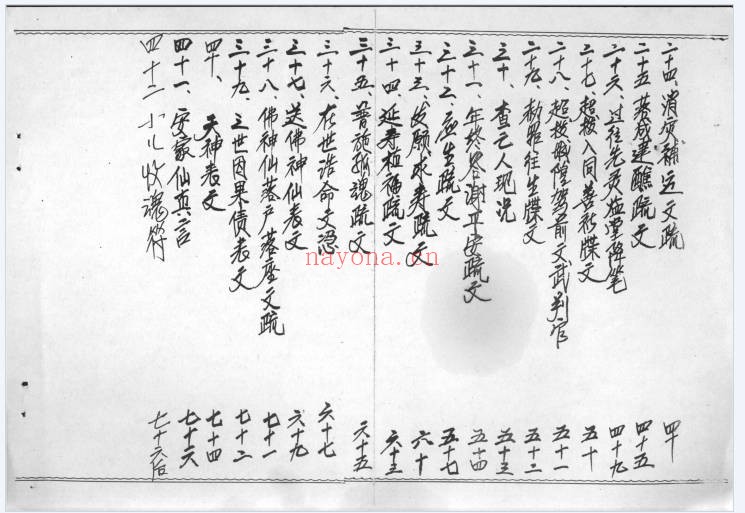 二十四、消灾補运文疏 四十
二十五 落成建醮疏文 四十五
二十六、过往先灵临坛降笔 四十九
二十七、超拔入同善社牒文 五十
二十八、超拔城隍驾前文武判官 五十一
二十九、赦罪往生牒文 五十二
三十、查亡人现况 五十三
三十一、年终答谢平安疏文 五十四
三十二、放生疏文 五十七
三十三、发愿求寿疏文 六十
三十四、延寿植福疏文 六十三
三十五、普施孤魂疏文 六十五
三十六、在世诰命文 六十七
三十七、送佛神仙表文 六十九
三十八、佛神仙落户落座文疏 七十一
三十九、三世因果债表文 七十二
四十、天神表文 七十四
四十一、安家仙真言 七十六
四十二 小儿收魂符 七十六后
nayona.cn